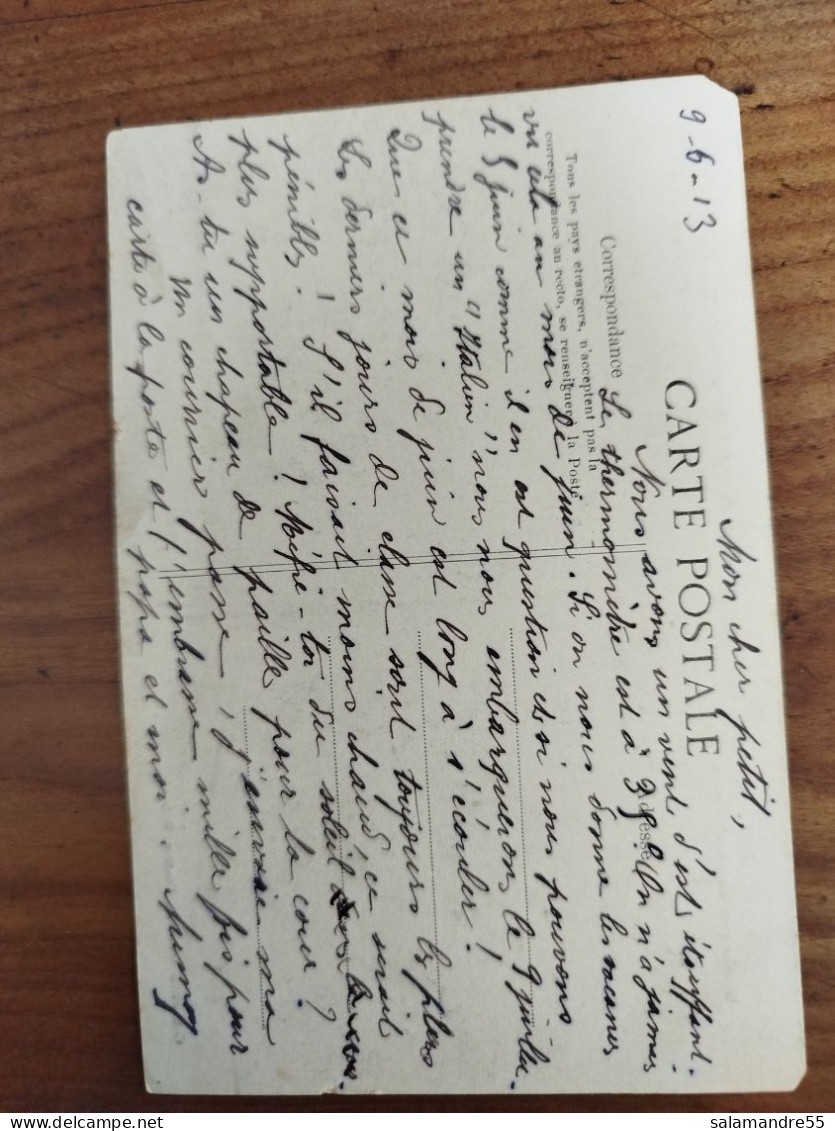 9-6-13
Mon cher petit,
CARTE POSTALE
Correspondance
Adresse
Tous les pays étrangers, n'acceptent pas la
correspondance au recto, se renseigner à la Poste
Nous avons un vent d'est étouffant.
Le thermomètre est à 39°. On n'a jamais
vu cela au mois de juin. Si on nous donne les vacances
le 5 juin comme il en est question et si nous pouvons
prendre un "Italien" nous nous embarquerons le 9 juillet.
Que ce mois de juin est long à s'écouler!
Les derniers jours de classe sont toujours les plus
pénibles. ! S'il faisait moins chaud, ce serait
plus supportable! Méfie-toi du soleil
As-tu un chapeau de paille pour la cour?
Un courrier passe, j'envoie ma
carte à la poste et t'embrasse mille fois pour
papa et moi.
salamandre55
delcampe.net